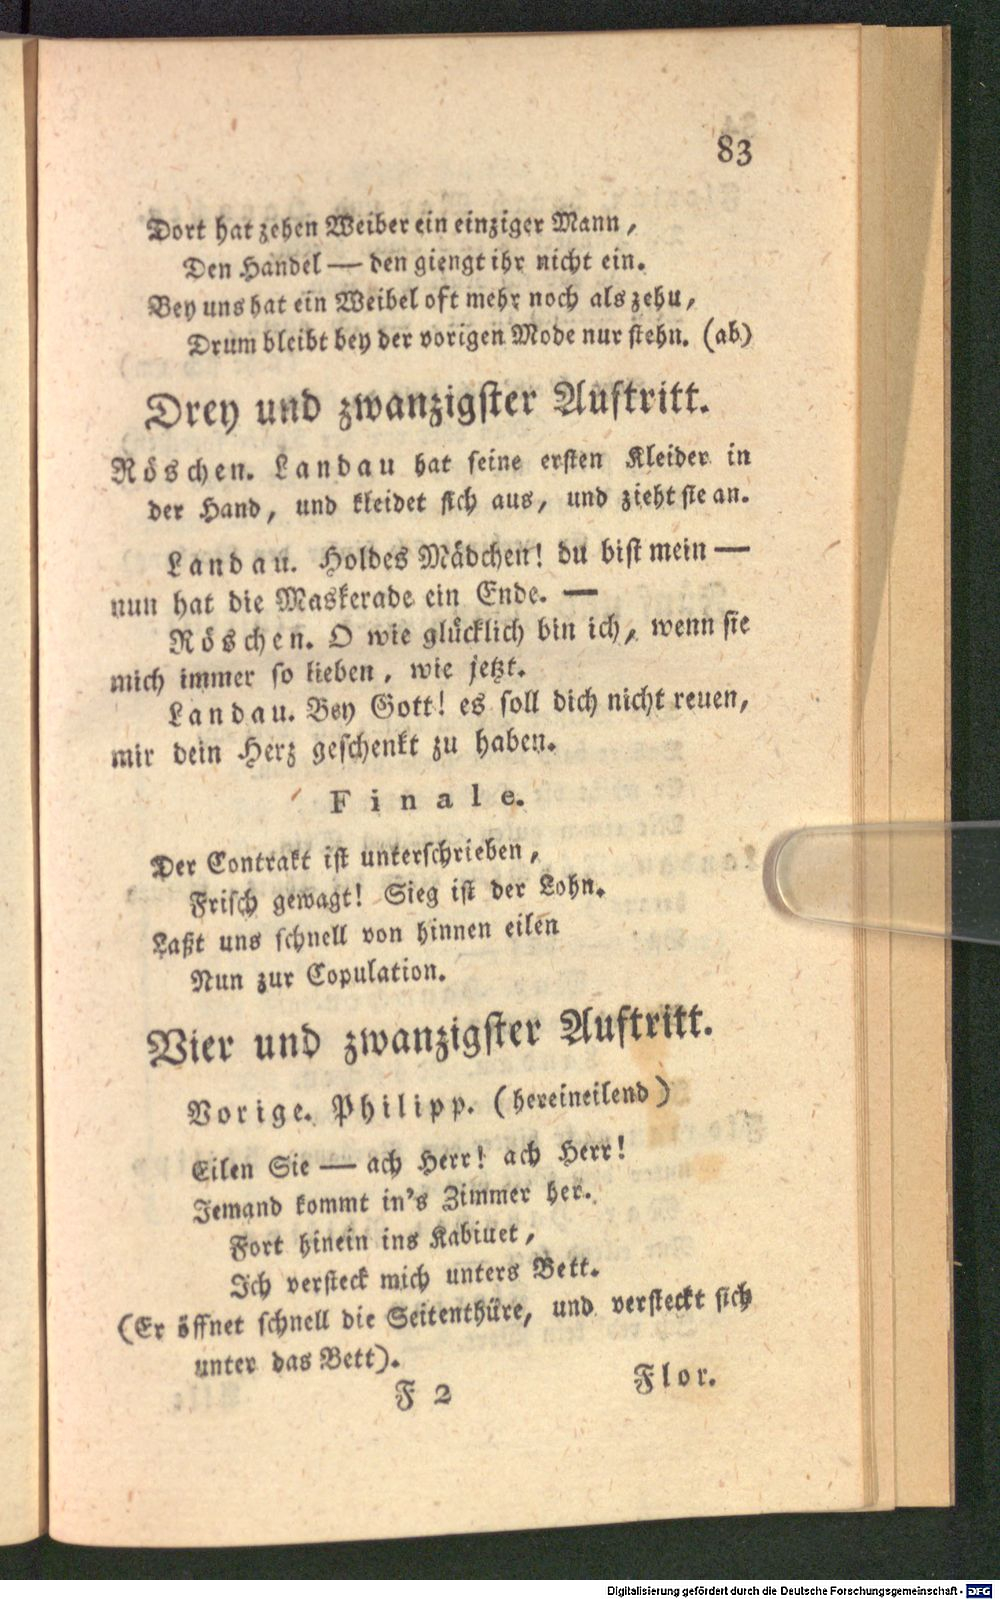 83
Dort hat zehen Weiber ein einziger Mann,
Den Handel — den giengt ihr nicht ein.
Bey uns hat ein Weibel oft mehr noch als zehu,
Drum bleibt bey der vorigen Mode nur stehn. (ab)
Drey und zwanzigster Auftritt.
Röschen. Landau hat seine ersten Kleider in
der Hand, und kleidet sich aus, und zieht sie an.
Landau. Holdes Mädchen! du bist mein —
nun hat die Maskerade ein Ende. —
Röschen. O wie glücklich bin ich, wenn sie
mich immer so lieben, wie jetzt.
Landau. Bey Gott! es soll dich nicht reuen,
mir dein Herz geschenkt zu haben.
Finale.
Der Contrakt ist unterschrieben,
Frisch gewagt! Sieg ist der Lohn.
Laßt uns schnell von hinnen eilen
Nun zur Copulation.
Vier und zwanzigster Auftritt.
Vorige. Philipp. (hereineilend)
Eilen Sie — ach Herr! ach Herr!
Jemand kommt in's Zimmer her.
Fort hinein ins Kabiuet,
Ich versteck mich unters Bett.
(Er öffnet schnell die Seitenthüre, und versteckt sich
unter das Bett).
F 2
Flor.
Digitalisierung gefördert durch die Deutsche Forschungsgemeinschaft - DFG